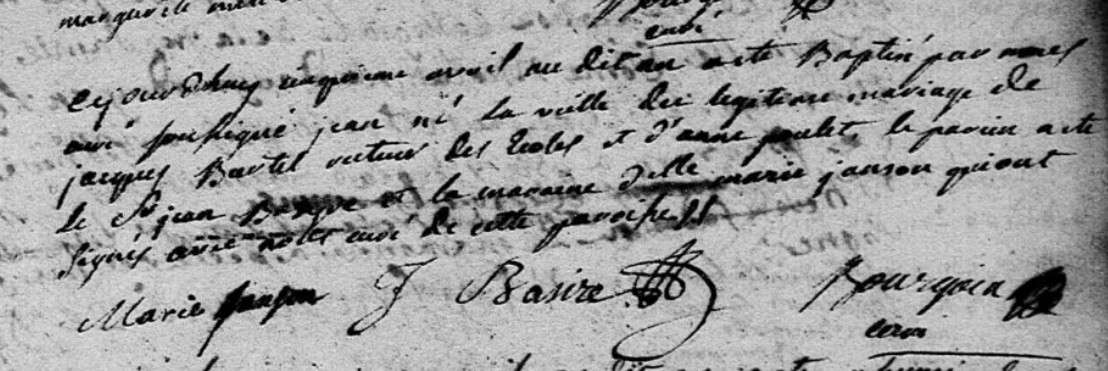 curé
cejourdhuy cinquieme avril au dit an a ete Baptisé par nous
curé soussigné jean né la veille du legitime mariage de
jacques Bartel recteur des Ecoles et d'anne poulet, le parein a ete
le Sr jean Basire et la maraine Delle marie janson qui ont
signés avec nous curé de cette paroisse
Marie janson J Basire Bourgoin
curé